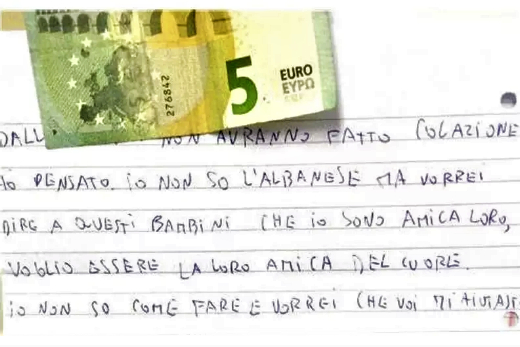 5 EURO
ΕΥΡΩ
276842
DALL NON AVRANNO FATTO COLAZIONE
HO PENSATO. IO NON SO L'ALBANESE MA VORREI
DIRE A QUESTI BAMBINI CHE IO SONO AMICA LORO,
VOGLIO ESSERE LA LORO AMICA DEL CUORE.
IO NON SO COME FARE E VORREI CHE VOI MI AIUTAST